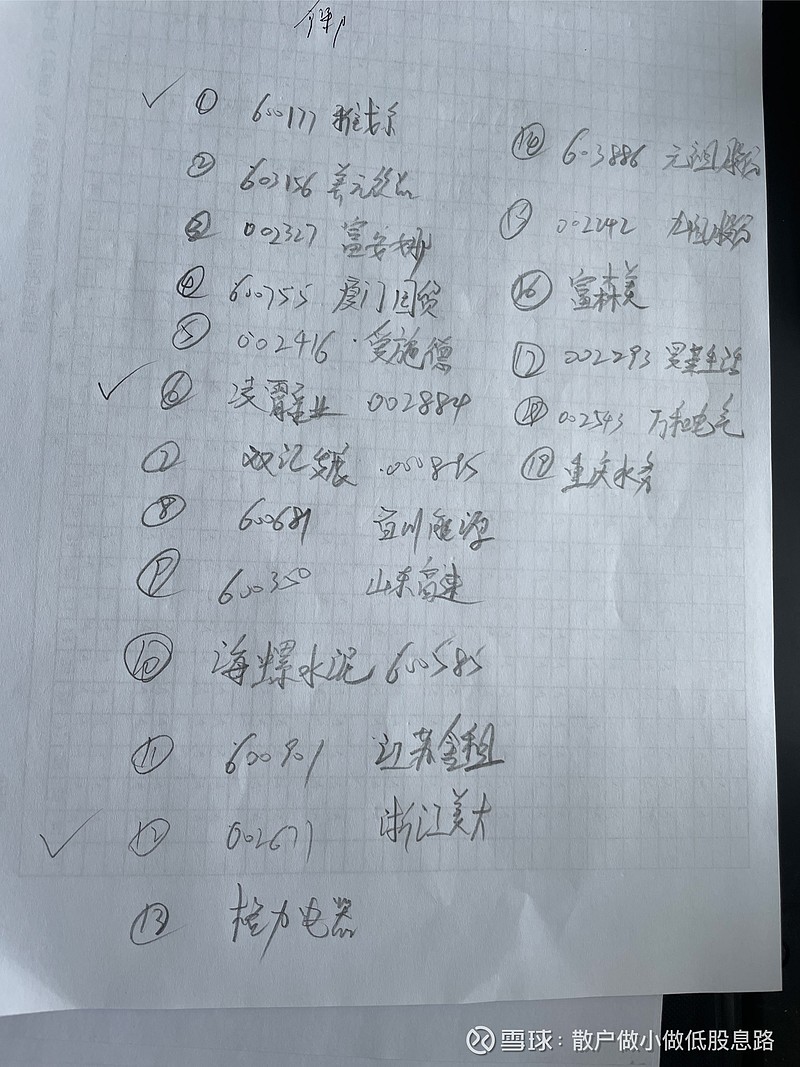 ✓ ① 600177 雅戈尔
② 603156 养元饮品
③ 002327 富安娜
④ 600755 厦门国贸
⑤ 002416 爱施德
✓ ⑥ 凌霄泵业 002884
⑦ 双汇发展 000895
⑧ 600681 百川能源
⑨ 600350 山东高速
⑩ 海螺水泥 600585
⑪ 600901 江苏金租
✓ ⑫ 002677 浙江美大
⑬ 格力电器
⑭ 603886 元祖股份
⑮ 002242 九阳股份
⑯ 富森美
⑰ 002293 罗莱生活
⑱ 002543 万和电气
⑲ 重庆水务
雪球:散户做小做低股息路